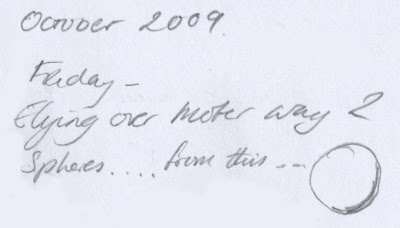 October 2009.
Friday –
Flying over Moter way 2
Spheres.... from this ---